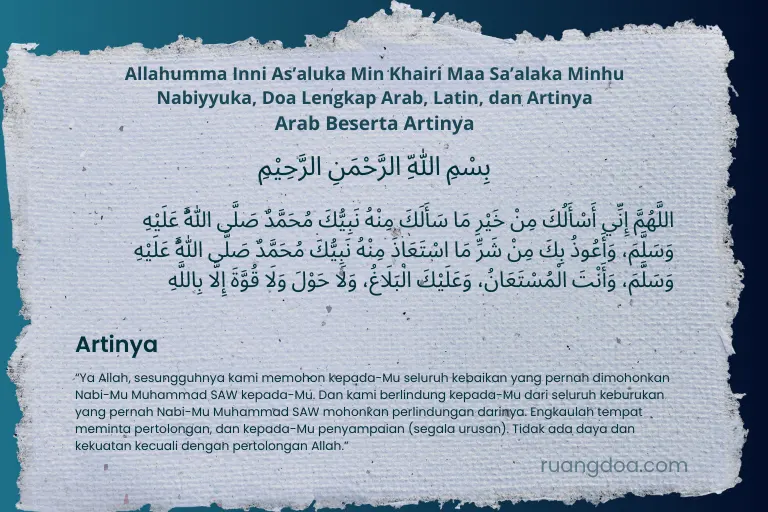 Allahumma Inni As’aluka Min Khairi Maa Sa’alaka Minhu
Nabiyyuka, Doa Lengkap Arab, Latin, dan Artinya
Arab Beserta Artinya
بِسْمِ اللّٰهِ الرَّحْمَنِ الرَّحِيْمِ
اللَّهُمَّ إِنِّي أَسْأَلُكَ مِنْ خَيْرِ مَا سَأَلَكَ مِنْهُ نَبِيُّكَ مُحَمَّدٌ صَلَّى اللهُ عَلَيْهِ
وَسَلَّمَ، وَأَعُوذُ بِكَ مِنْ شَرِّ مَا اسْتَعَاذَ مِنْهُ نَبِيُّكَ مُحَمَّدٌ صَلَّى اللهُ عَلَيْهِ
وَسَلَّمَ، وَأَنْتَ الْمُسْتَعَانُ، وَعَلَيْكَ الْبَلَاغُ، وَلَا حَوْلَ وَلَا قُوَّةَ إِلَّا بِاللَّهِ
Artinya
“Ya Allah, sesungguhnya kami memohon kepada-Mu seluruh kebaikan yang pernah dimohonkan
Nabi-Mu Muhammad SAW kepada-Mu. Dan kami berlindung kepada-Mu dari seluruh keburukan
yang pernah Nabi-Mu Muhammad SAW mohonkan perlindungan darinya. Engkaulah tempat
meminta pertolongan, dan kepada-Mu penyampaian (segala urusan). Tidak ada daya dan
kekuatan kecuali dengan pertolongan Allah.”
ruangdoa.com